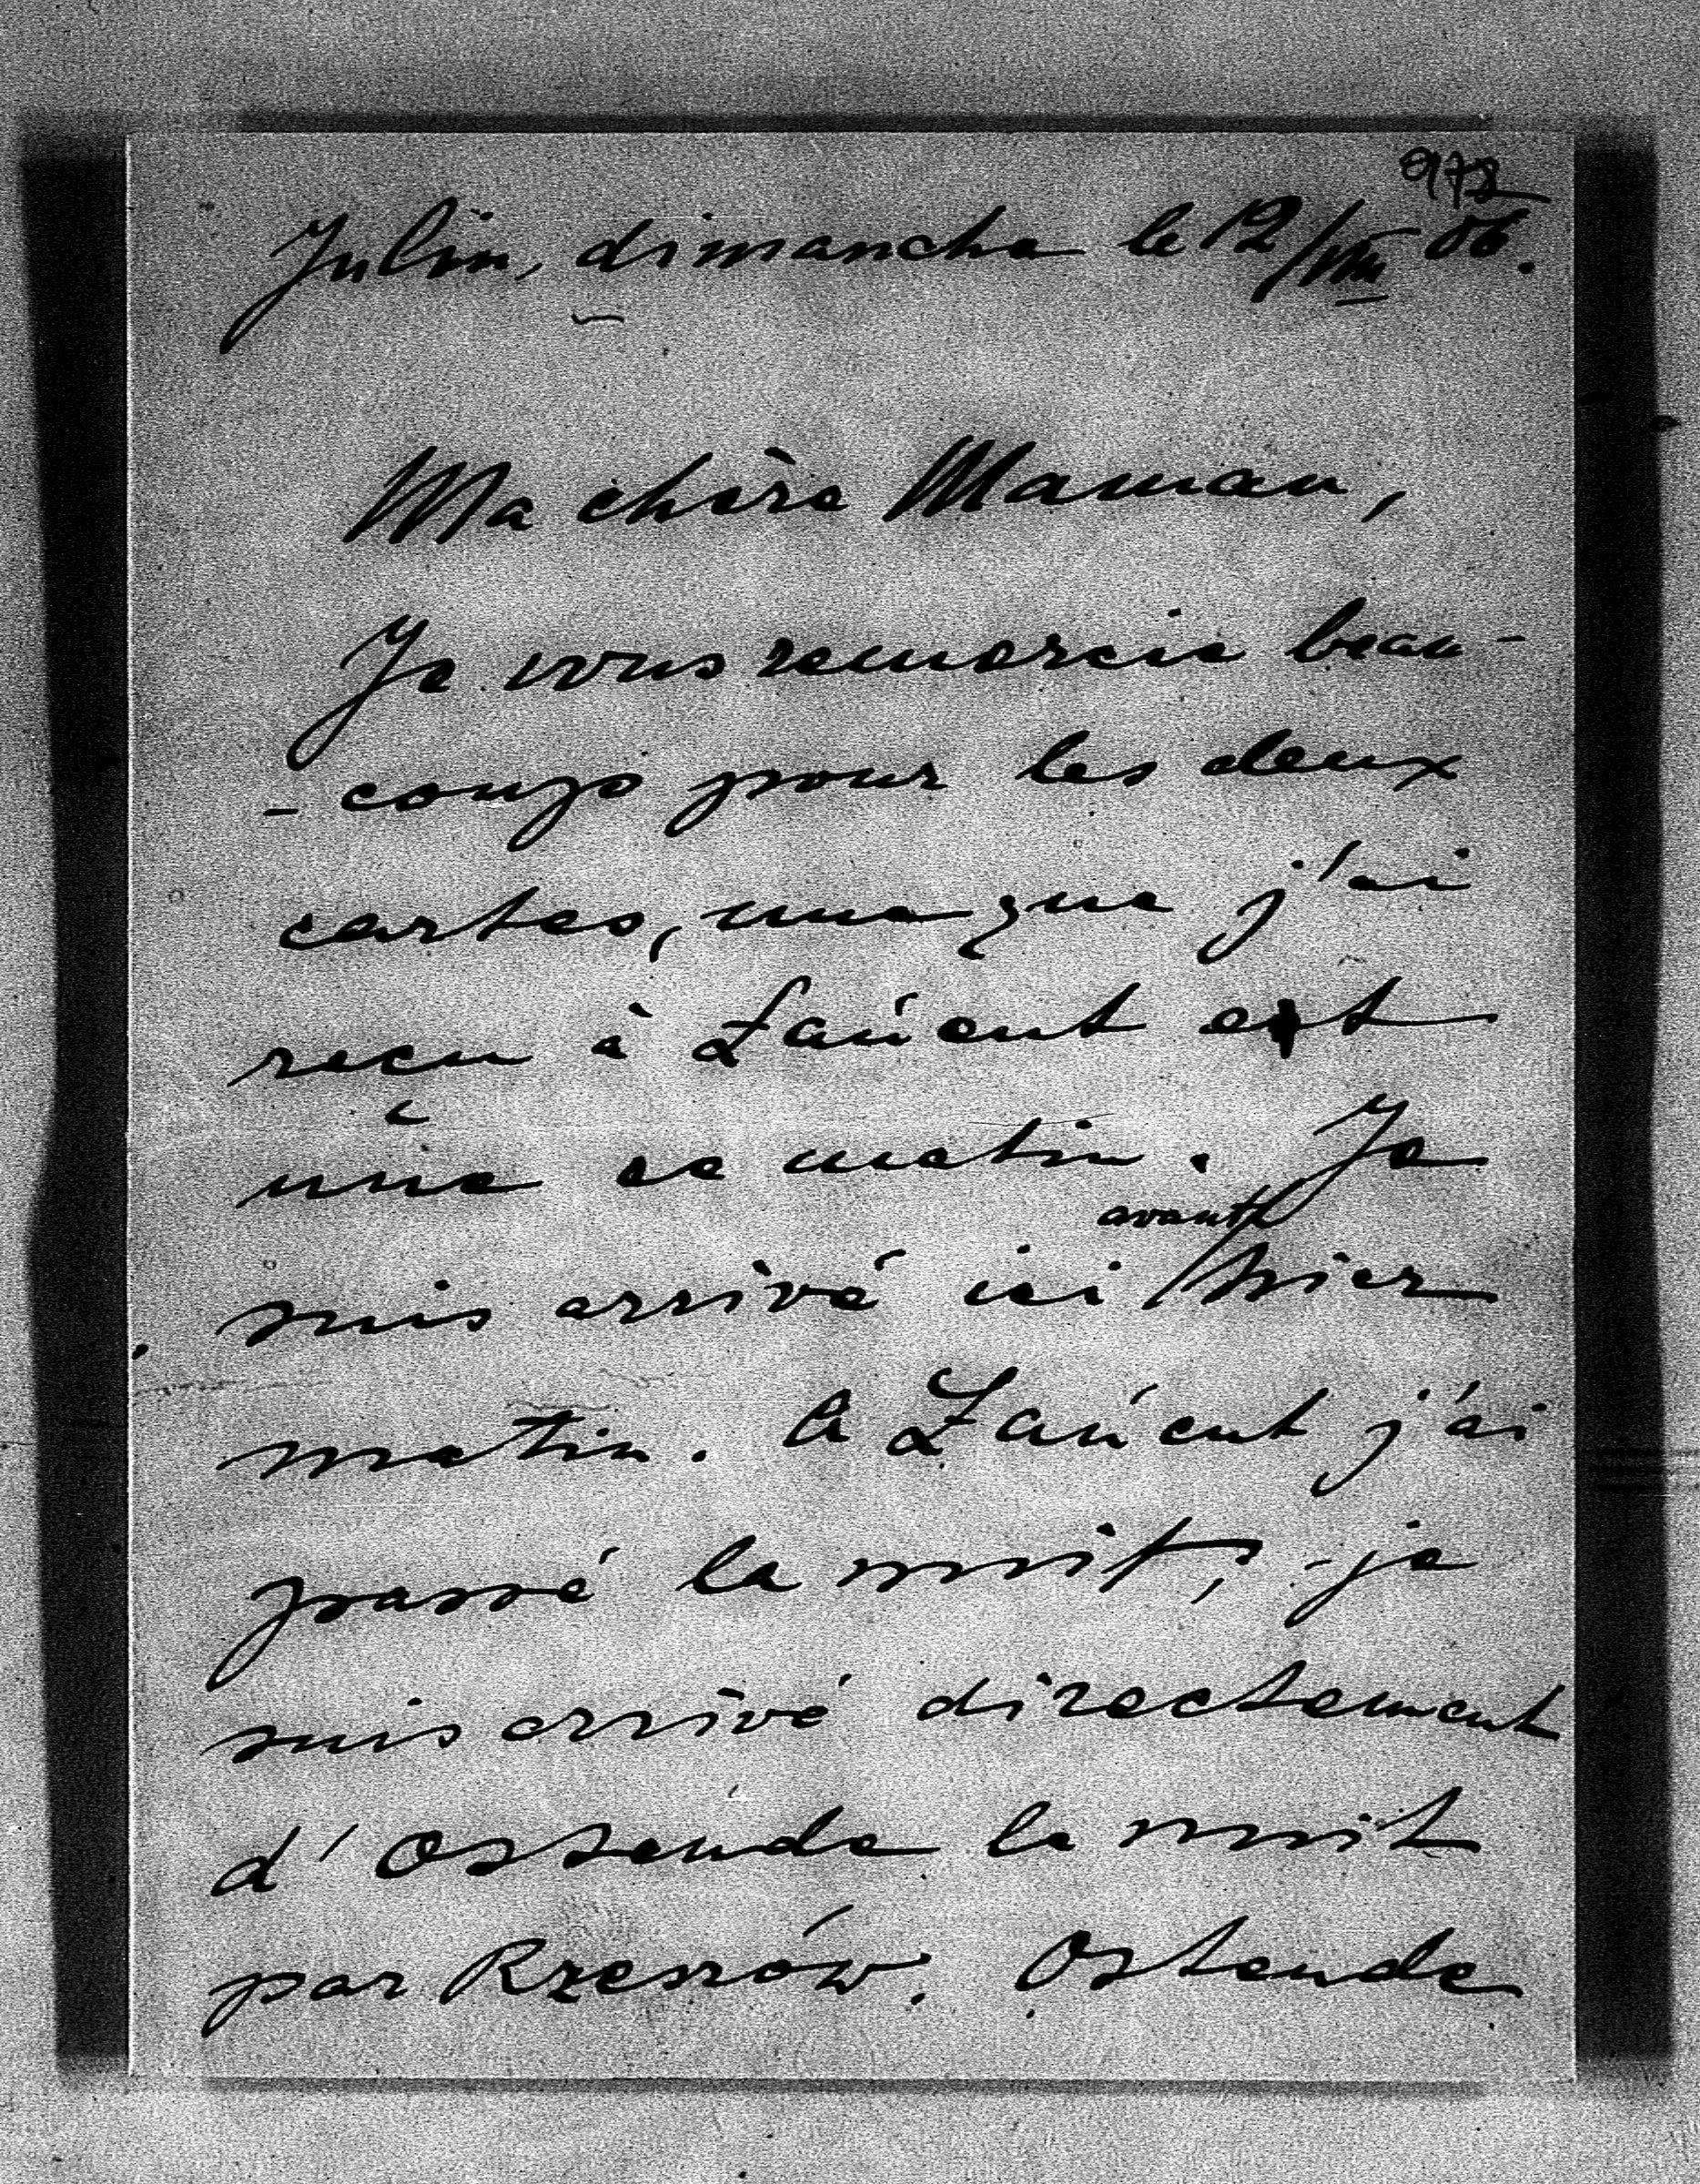 978
Julin, dimanche le 12/VIII 06.
Ma chère Maman,
Je vous remercie beau-
- coup pour les deux
cartes, une que j'ai
recu à Łańcut et
une ce matin. Je
suis arrivé ici avant hier
matin. A Łańcut j'ai
passé la nuit, je
suis arrivé directement
d'Ostende la nuit
par Rzeszów. Ostende